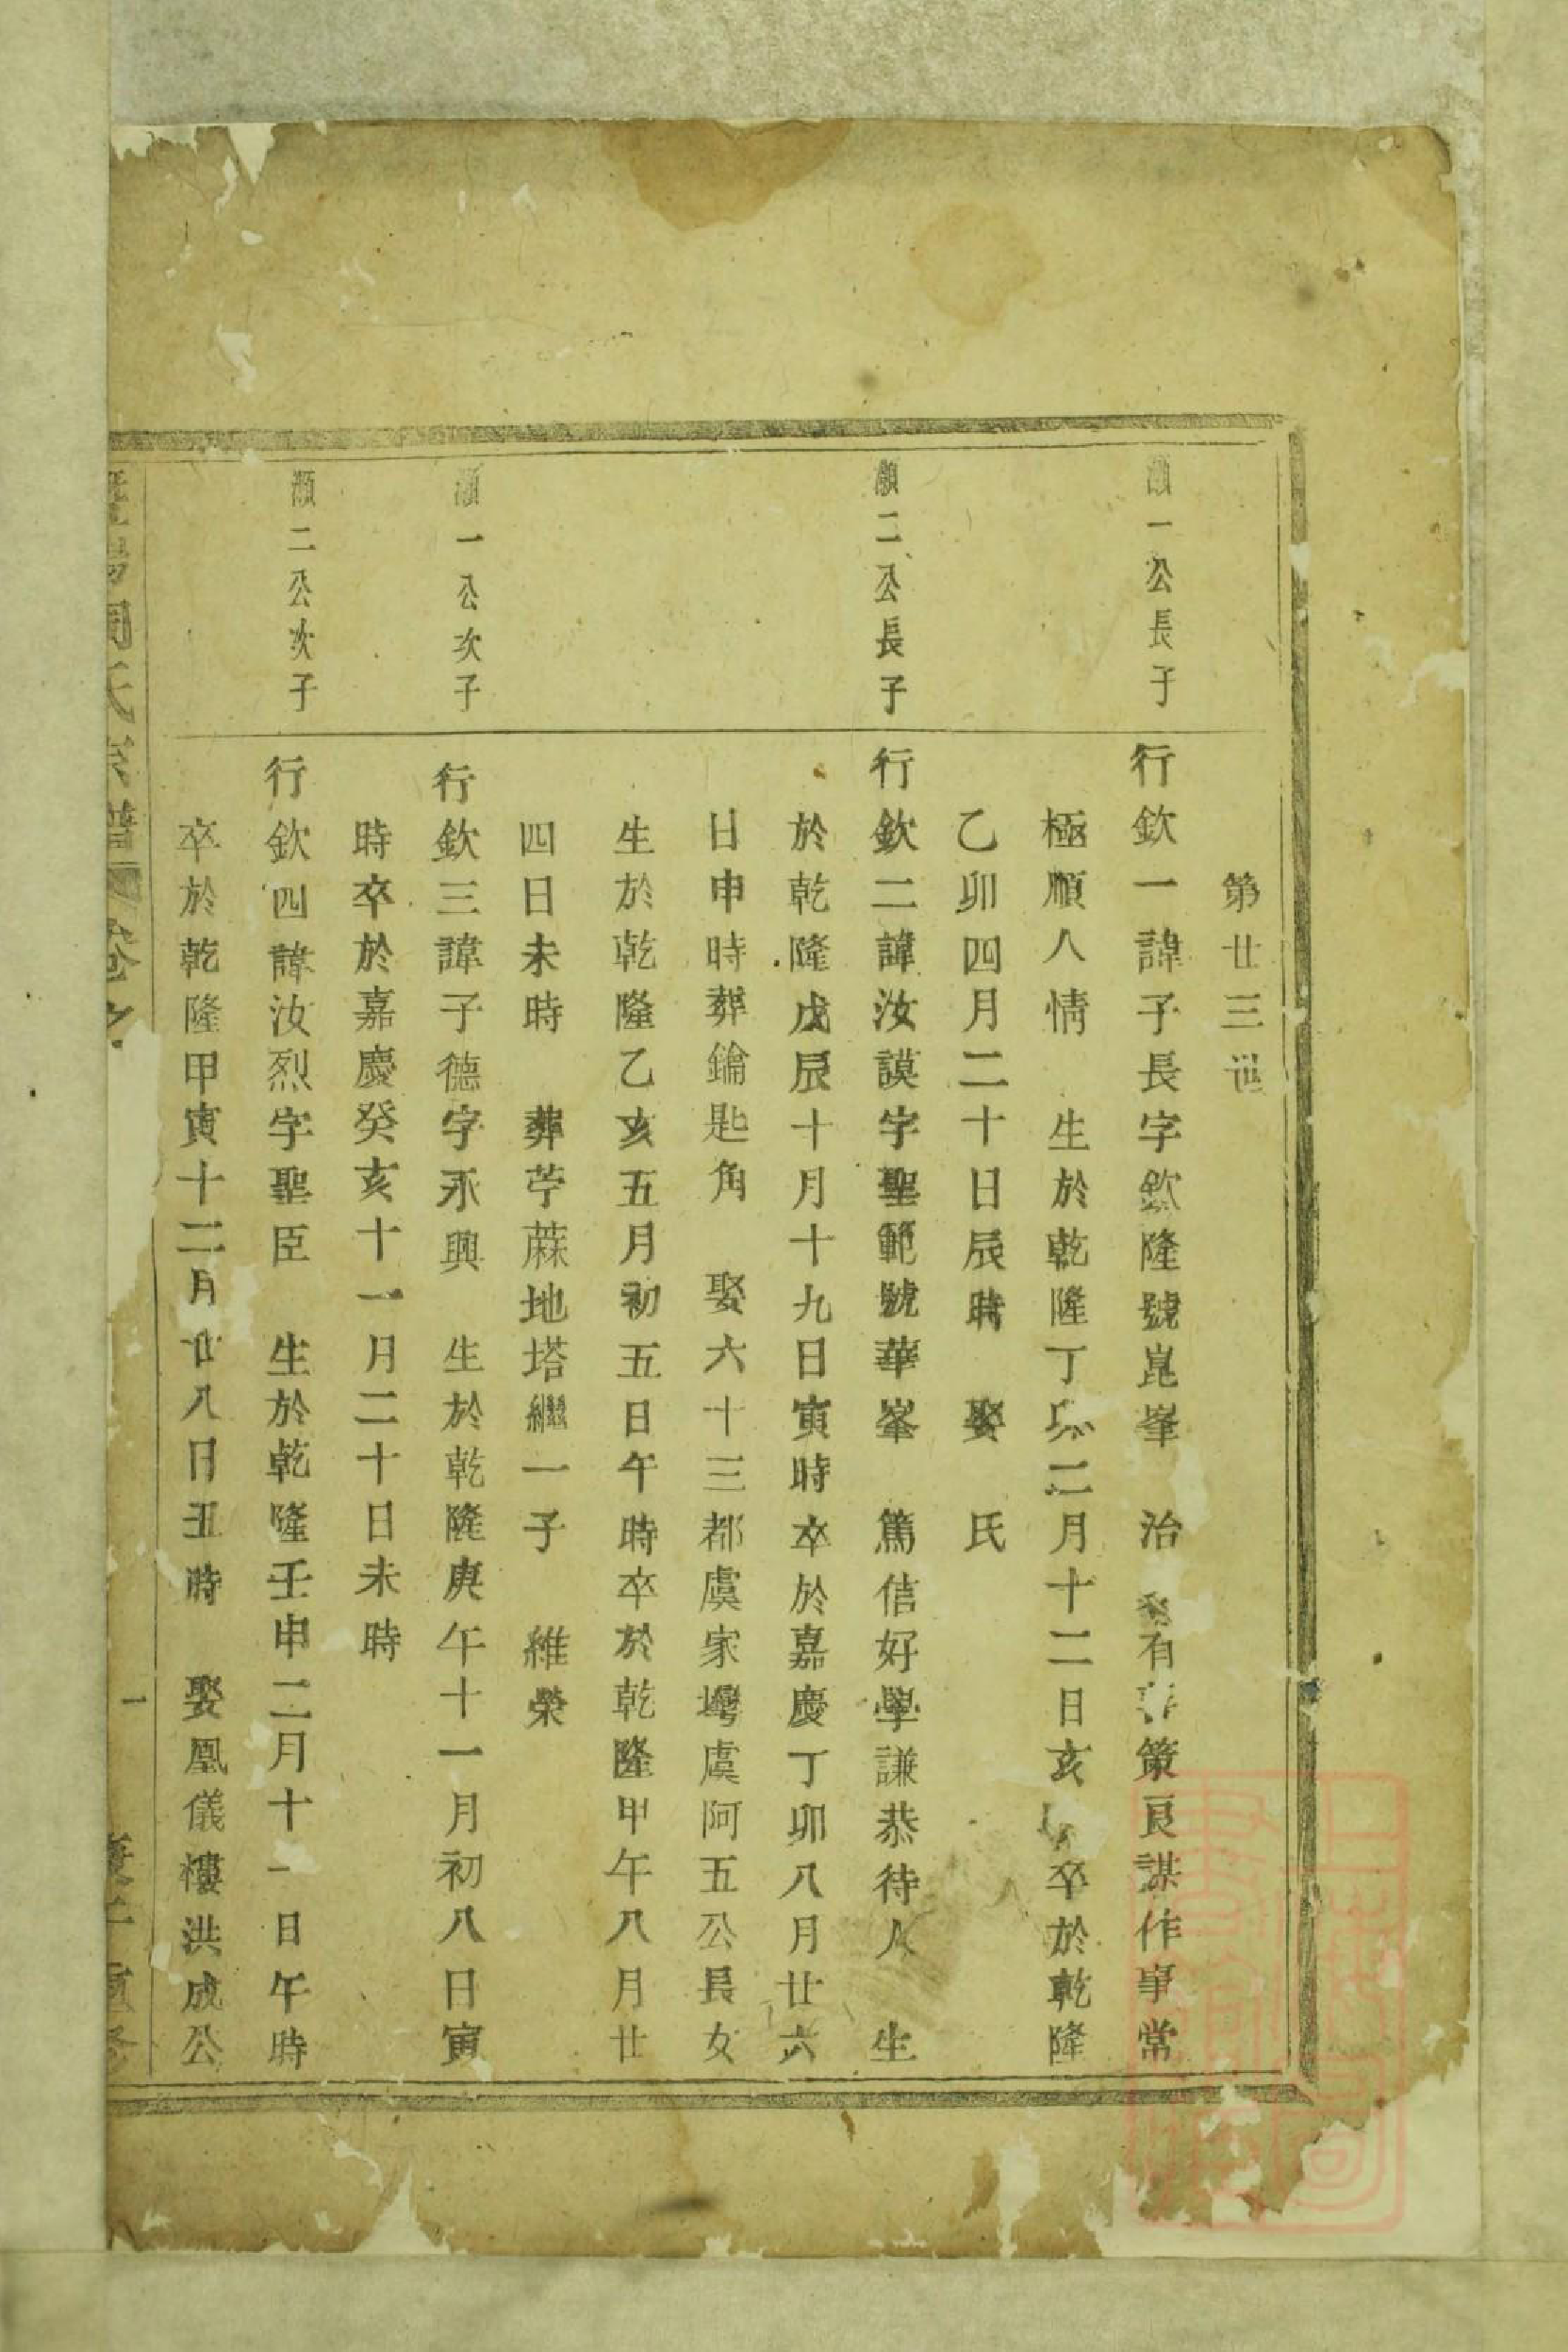 第廿三世
灝一公長子
行欽一諱子長字欽隆號崑峯 治 有 策良謀作事常
極順人情 生於乾隆丁 二月十二日亥 卒於乾隆
乙卯四月二十日辰時 娶 氏
灝二公長子
行欽二諱汝謨字聖範號華峯 篤信好學謙恭待人 生
於乾隆戊辰十月十九日寅時卒於嘉慶丁卯八月廿六
日申時葬鑰匙角 娶六十三都虞家塆虞阿五公長女
生於乾隆乙亥五月初五日午時卒於乾隆甲午八月廿
四日未時 葬苧蔴地塔繼一子 維榮
灝一公次子
行欽三諱子德字永興 生於乾隆庚午十一月初八日寅
時卒於嘉慶癸亥十一月二十日未時
灝二公次子
行欽四諱汝烈字聖臣 生於乾隆壬申二月十一日午時
卒於乾隆甲寅十二月廿八日丑時 娶凰儀樓洪成公
周氏宗譜 卷之
一
重修